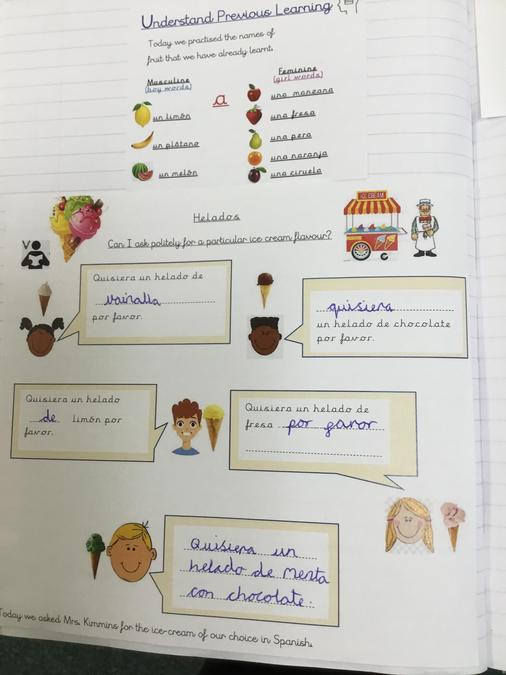 Understand Previous Learning
Today we practised the names of
fruit that we have already learnt.
Masculine
(boy words)
a
Feminine
(girl words)
un limón
un plátano
un melón
una manzana
una fresa
una pera
una naranja
una ciruela
Helados
Can I ask politely for a particular ice cream flavour?
ICE CREAM
V
Quisiera un helado de
vainalla
por favor.
quisiera
un helado de chocolate
por favor.
Quisiera un helado
de limón por
favor.
Quisiera un helado de
fresa por gavor
Quisiera un
helado de Menta
con chocolate.
Today we asked Mrs. Kimmins for the ice-cream of our choice in Spanish.